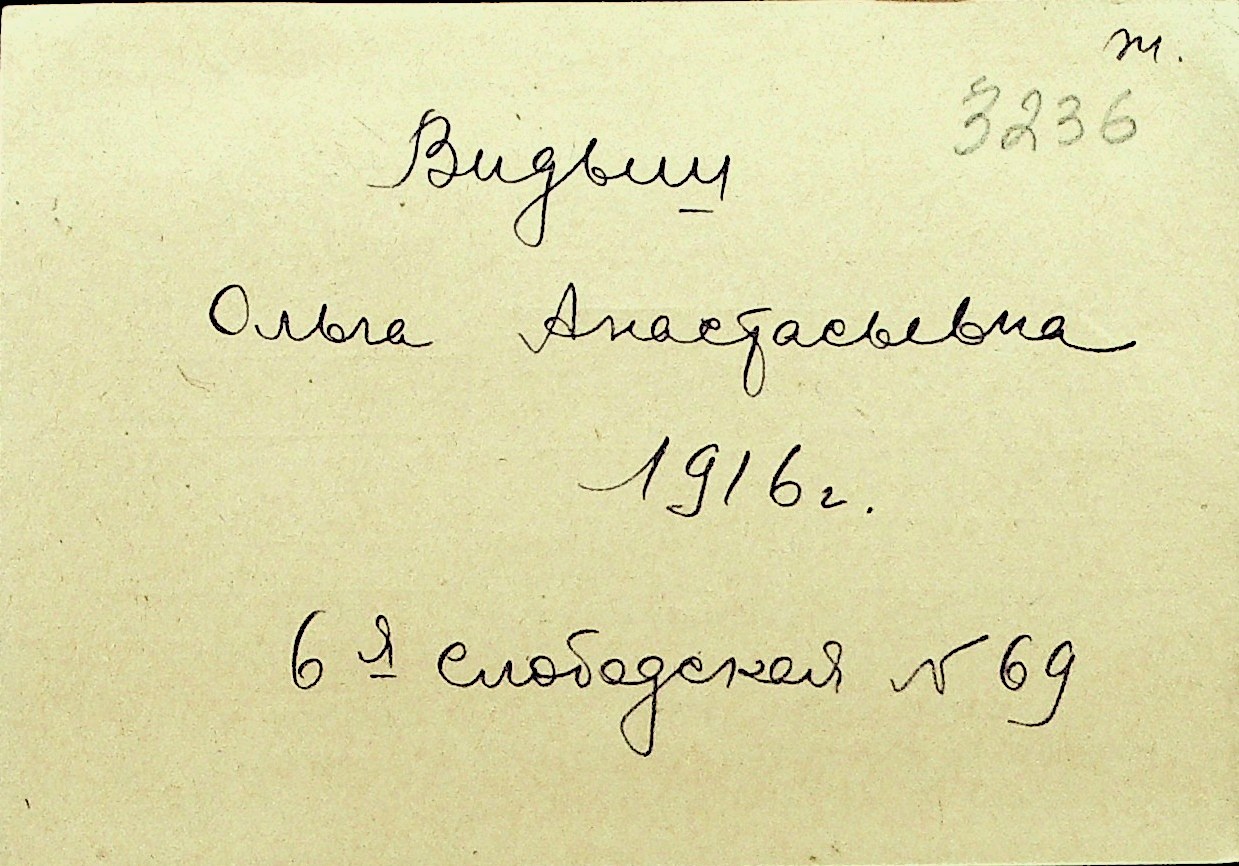 т.
3236
Видьиш
Ольга Анастасьевна
1916 г.
6 я слободская № 69